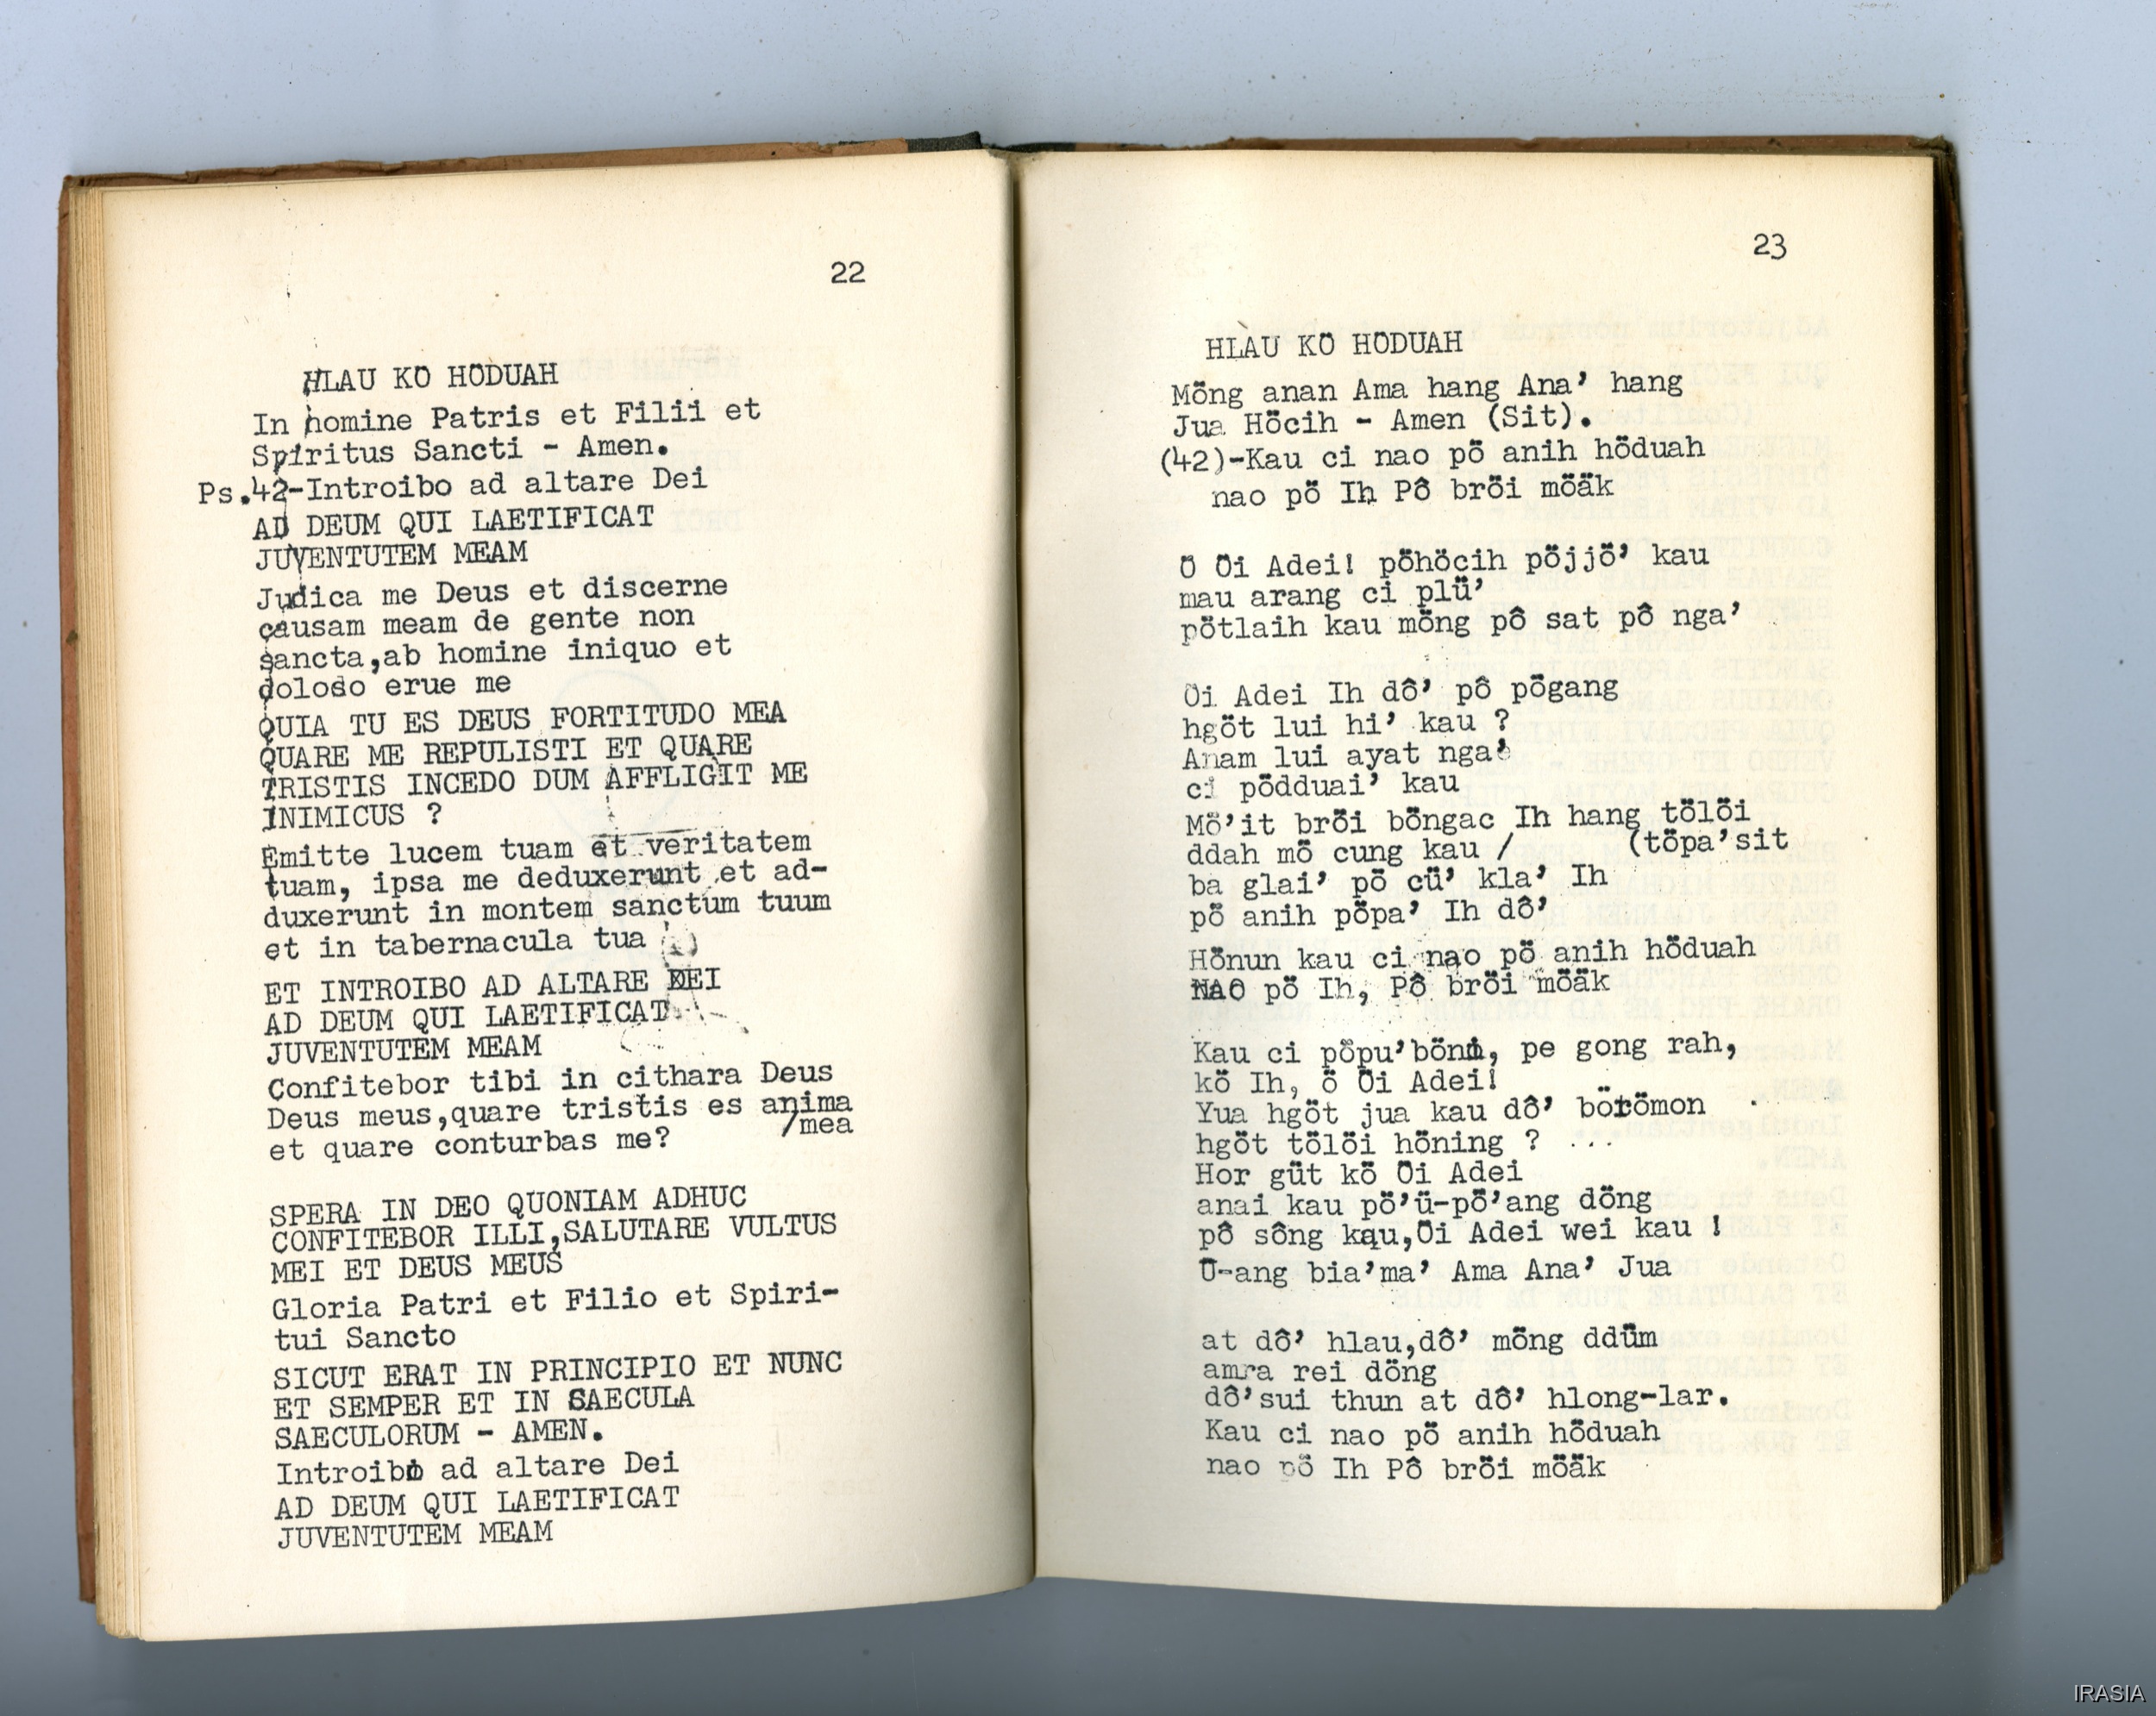 22
HLAU KÖ HÖDUAH
In nomine Patris et Filii et
Spiritus Sancti - Amen.
Ps.42-Introibo ad altare Dei
AD DEUM QUI LAETIFICAT
JUVENTUTEM MEAM
Judica me Deus et discerne
causam meam de gente non
sancta,ab homine iniquo et
doloso erue me
QUIA TU ES DEUS FORTITUDO MEA
QUARE ME REPULISTI ET QUARE
TRISTIS INCEDO DUM AFFLIGIT ME
INIMICUS ?
Emitte lucem tuam et veritatem
tuam, ipsa me deduxerunt et ad-
duxerunt in montem sanctum tuum
et in tabernacula tua
ET INTROIBO AD ALTARE DEI
AD DEUM QUI LAETIFICAT
JUVENTUTEM MEAM
Confitebor tibi in cithara Deus
Deus meus,quare tristis es anima
et quare conturbas me? /mea
SPERA IN DEO QUONIAM ADHUC
CONFITEBOR ILLI,SALUTARE VULTUS
MEI ET DEUS MEUS
Gloria Patri et Filio et Spiri-
tui Sancto
SICUT ERAT IN PRINCIPIO ET NUNC
ET SEMPER ET IN SAECULA
SAECULORUM - AMEN.
Introibo ad altare Dei
AD DEUM QUI LAETIFICAT
JUVENTUTEM MEAM
23
HLAU KÖ HÖDUAH
Möng anan Ama hang Ana' hang
Jua Höcih - Amen (Sit).
(42)-Kau ci nao pö anih höduah
nao pö Ih Pô bröi möäk
Ö Öi Adei! pöhöcih pöjjö' kau
mau arang ci plü'
pötlaih kau möng pô sat pô nga'
Öi Adei Ih dô' pô pögang
hgöt lui hi' kau ?
Anam lui ayat nga'
ci pödduai' kau
Mö'it bröi böngac Ih hang tölöi
ddah mö cung kau / (töpa'sit
ba glai' pö cü' kla' Ih
pö anih pöpa' Ih dô'
Hönun kau ci nao pö anih höduah
NAO pö Ih, Pô bröi möäk
Kau ci pöpu' pe gong rah,
kö Ih, ö Öi Adei!
Yua hgöt jua kau dô' börömon
hgöt tölöi höning ? ...
Hor güt kö Öi Adei
anai kau pö'ü-pö'ang döng
pô sông kau,Öi Adei wei kau !
Ü-ang bia'ma' Ama Ana' Jua
at dô' hlau,dô' möng ddüm
amra rei döng
dô'sui thun at dô' hlong-lar.
Kau ci nao pö anih höduah
nao pö Ih Pô bröi möäk
IRASIA